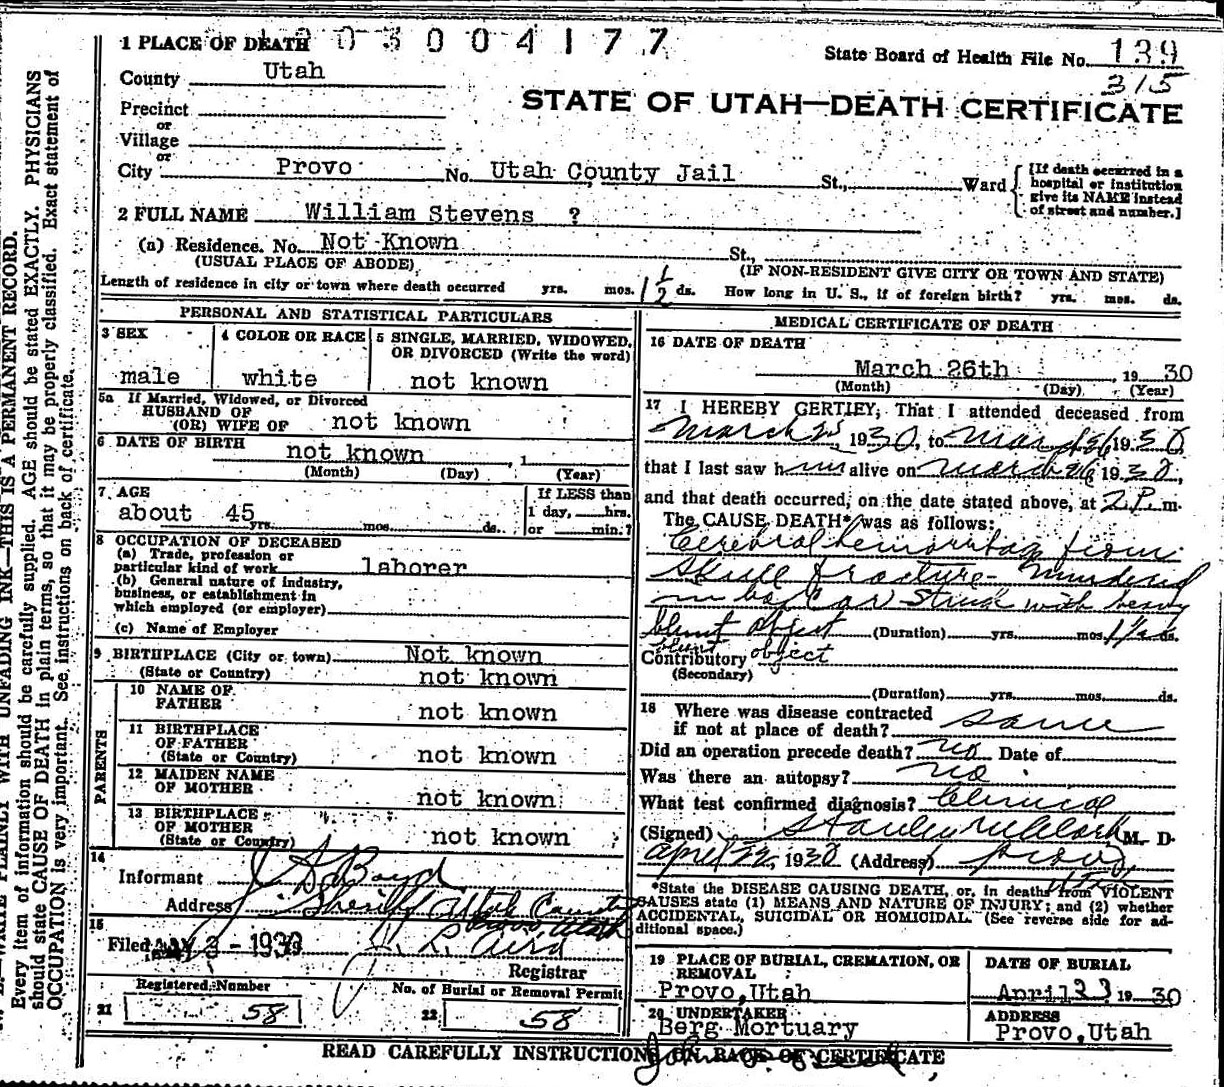 1 PLACE OF DEATH 3 0 0 4 1 7 7
State Board of Health File No. 139
315
County Utah
STATE OF UTAH—DEATH CERTIFICATE
Precinct
or
Village
or
City Provo No. Utah County Jail St., Ward
[If death occurred in a
hospital or institution
give its NAME instead
of street and number.]
2 FULL NAME William Stevens ?
(a) Residence. No. Not Known St.,
(USUAL PLACE OF ABODE) (IF NON-RESIDENT GIVE CITY OR TOWN AND STATE)
Length of residence in city or town where death occurred yrs. mos. 1 1/2 ds. How long in U. S., if of foreign birth? yrs. mos. ds.
PERSONAL AND STATISTICAL PARTICULARS
3 SEX
male
4 COLOR OR RACE
white
5 SINGLE, MARRIED, WIDOWED,
OR DIVORCED (Write the word)
not known
5a If Married, Widowed, or Divorced
HUSBAND OF
(OR) WIFE OF not known
6 DATE OF BIRTH
not known , 1
(Month) (Day) (Year)
7 AGE
about 45
yrs. mos. ds.
If LESS than
1 day, hrs.
or min.?
8 OCCUPATION OF DECEASED
(a) Trade, profession or
particular kind of work laborer
(b) General nature of industry,
business, or establishment in
which employed (or employer)
(c) Name of Employer
9 BIRTHPLACE (City or town) Not known
(State or Country) not known
PARENTS
10 NAME OF
FATHER not known
11 BIRTHPLACE
OF FATHER
(State or Country) not known
12 MAIDEN NAME
OF MOTHER not known
13 BIRTHPLACE
OF MOTHER
(State or Country) not known
14
Informant J S Boyd
Address Sheriff Utah County
Provo Utah
15
Filed MAY 3 - 1930
Registrar
Registered Number
21 58
No. of Burial or Removal Permit
22 58
MEDICAL CERTIFICATE OF DEATH
16 DATE OF DEATH
March 26th , 19 30
(Month) (Day) (Year)
17 I HEREBY CERTIFY, That I attended deceased from
March 25, 1930, to March 26 1930
that I last saw him alive on March 26 1930,
and that death occurred, on the date stated above, at 2 P. m.
The CAUSE DEATH* was as follows:
Cerebral hemorrhage from
skull fracture - murdered
in box car struck with heavy
blunt object (Duration) yrs. mos. 1 1/2 ds.
blunt object
Contributory
(Secondary)
(Duration) yrs. mos. ds.
18 Where was disease contracted
if not at place of death? same
Did an operation precede death? no Date of
Was there an autopsy? no
What test confirmed diagnosis? Clinical
(Signed) Stanley M Clark M. D.
April 22, 1930 (Address) Provo,
*State the DISEASE CAUSING DEATH, or, in deaths from VIOLENT
CAUSES state (1) MEANS AND NATURE OF INJURY; and (2) whether
ACCIDENTAL, SUICIDAL OR HOMICIDAL. (See reverse side for ad-
ditional space.)
19 PLACE OF BURIAL, CREMATION, OR
REMOVAL
Provo, Utah
DATE OF BURIAL
April 23 19 30
20 UNDERTAKER
Berg Mortuary
ADDRESS
Provo, Utah
READ CAREFULLY INSTRUCTIONS ON BACK OF CERTIFICATE
WRITE PLAINLY WITH UNFADING INK—THIS IS A PERMANENT RECORD.
Every item of information should be carefully supplied. AGE should be stated EXACTLY. PHYSICIANS
should state CAUSE OF DEATH in plain terms, so that it may be properly classified. Exact statement of
OCCUPATION is very important. See instructions on back of certificate.